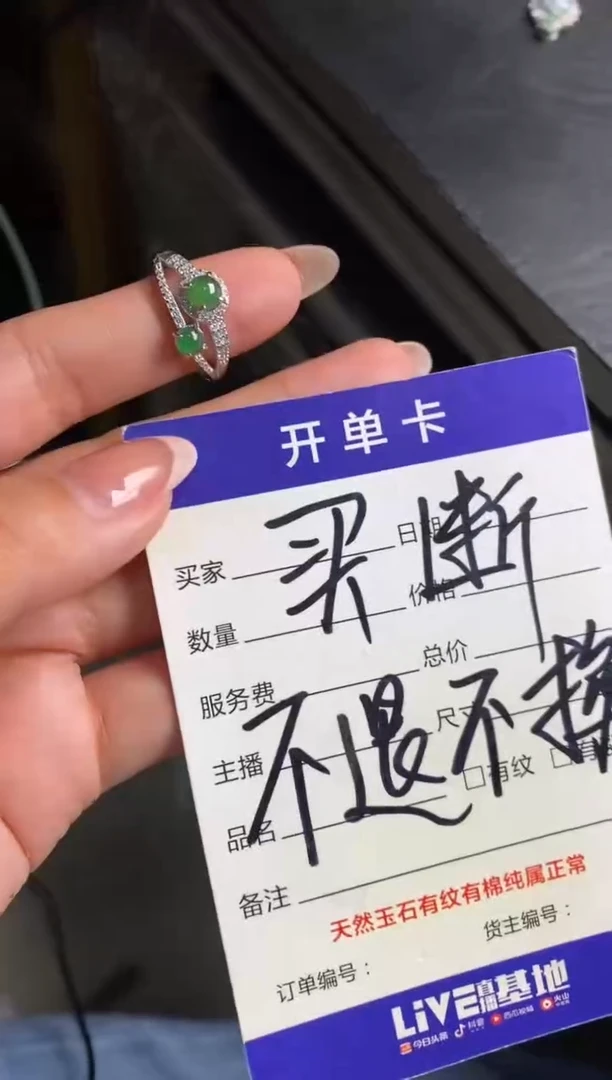 开单卡
买断
不退不换
买家 日期
数量 价格
服务费 总价
主播 尺寸
品名 □有纹 □有
备注
天然玉石有纹有棉纯属正常
货主编号：
订单编号：
LiVE直播基地
今日头条 抖音 西瓜视频 火山